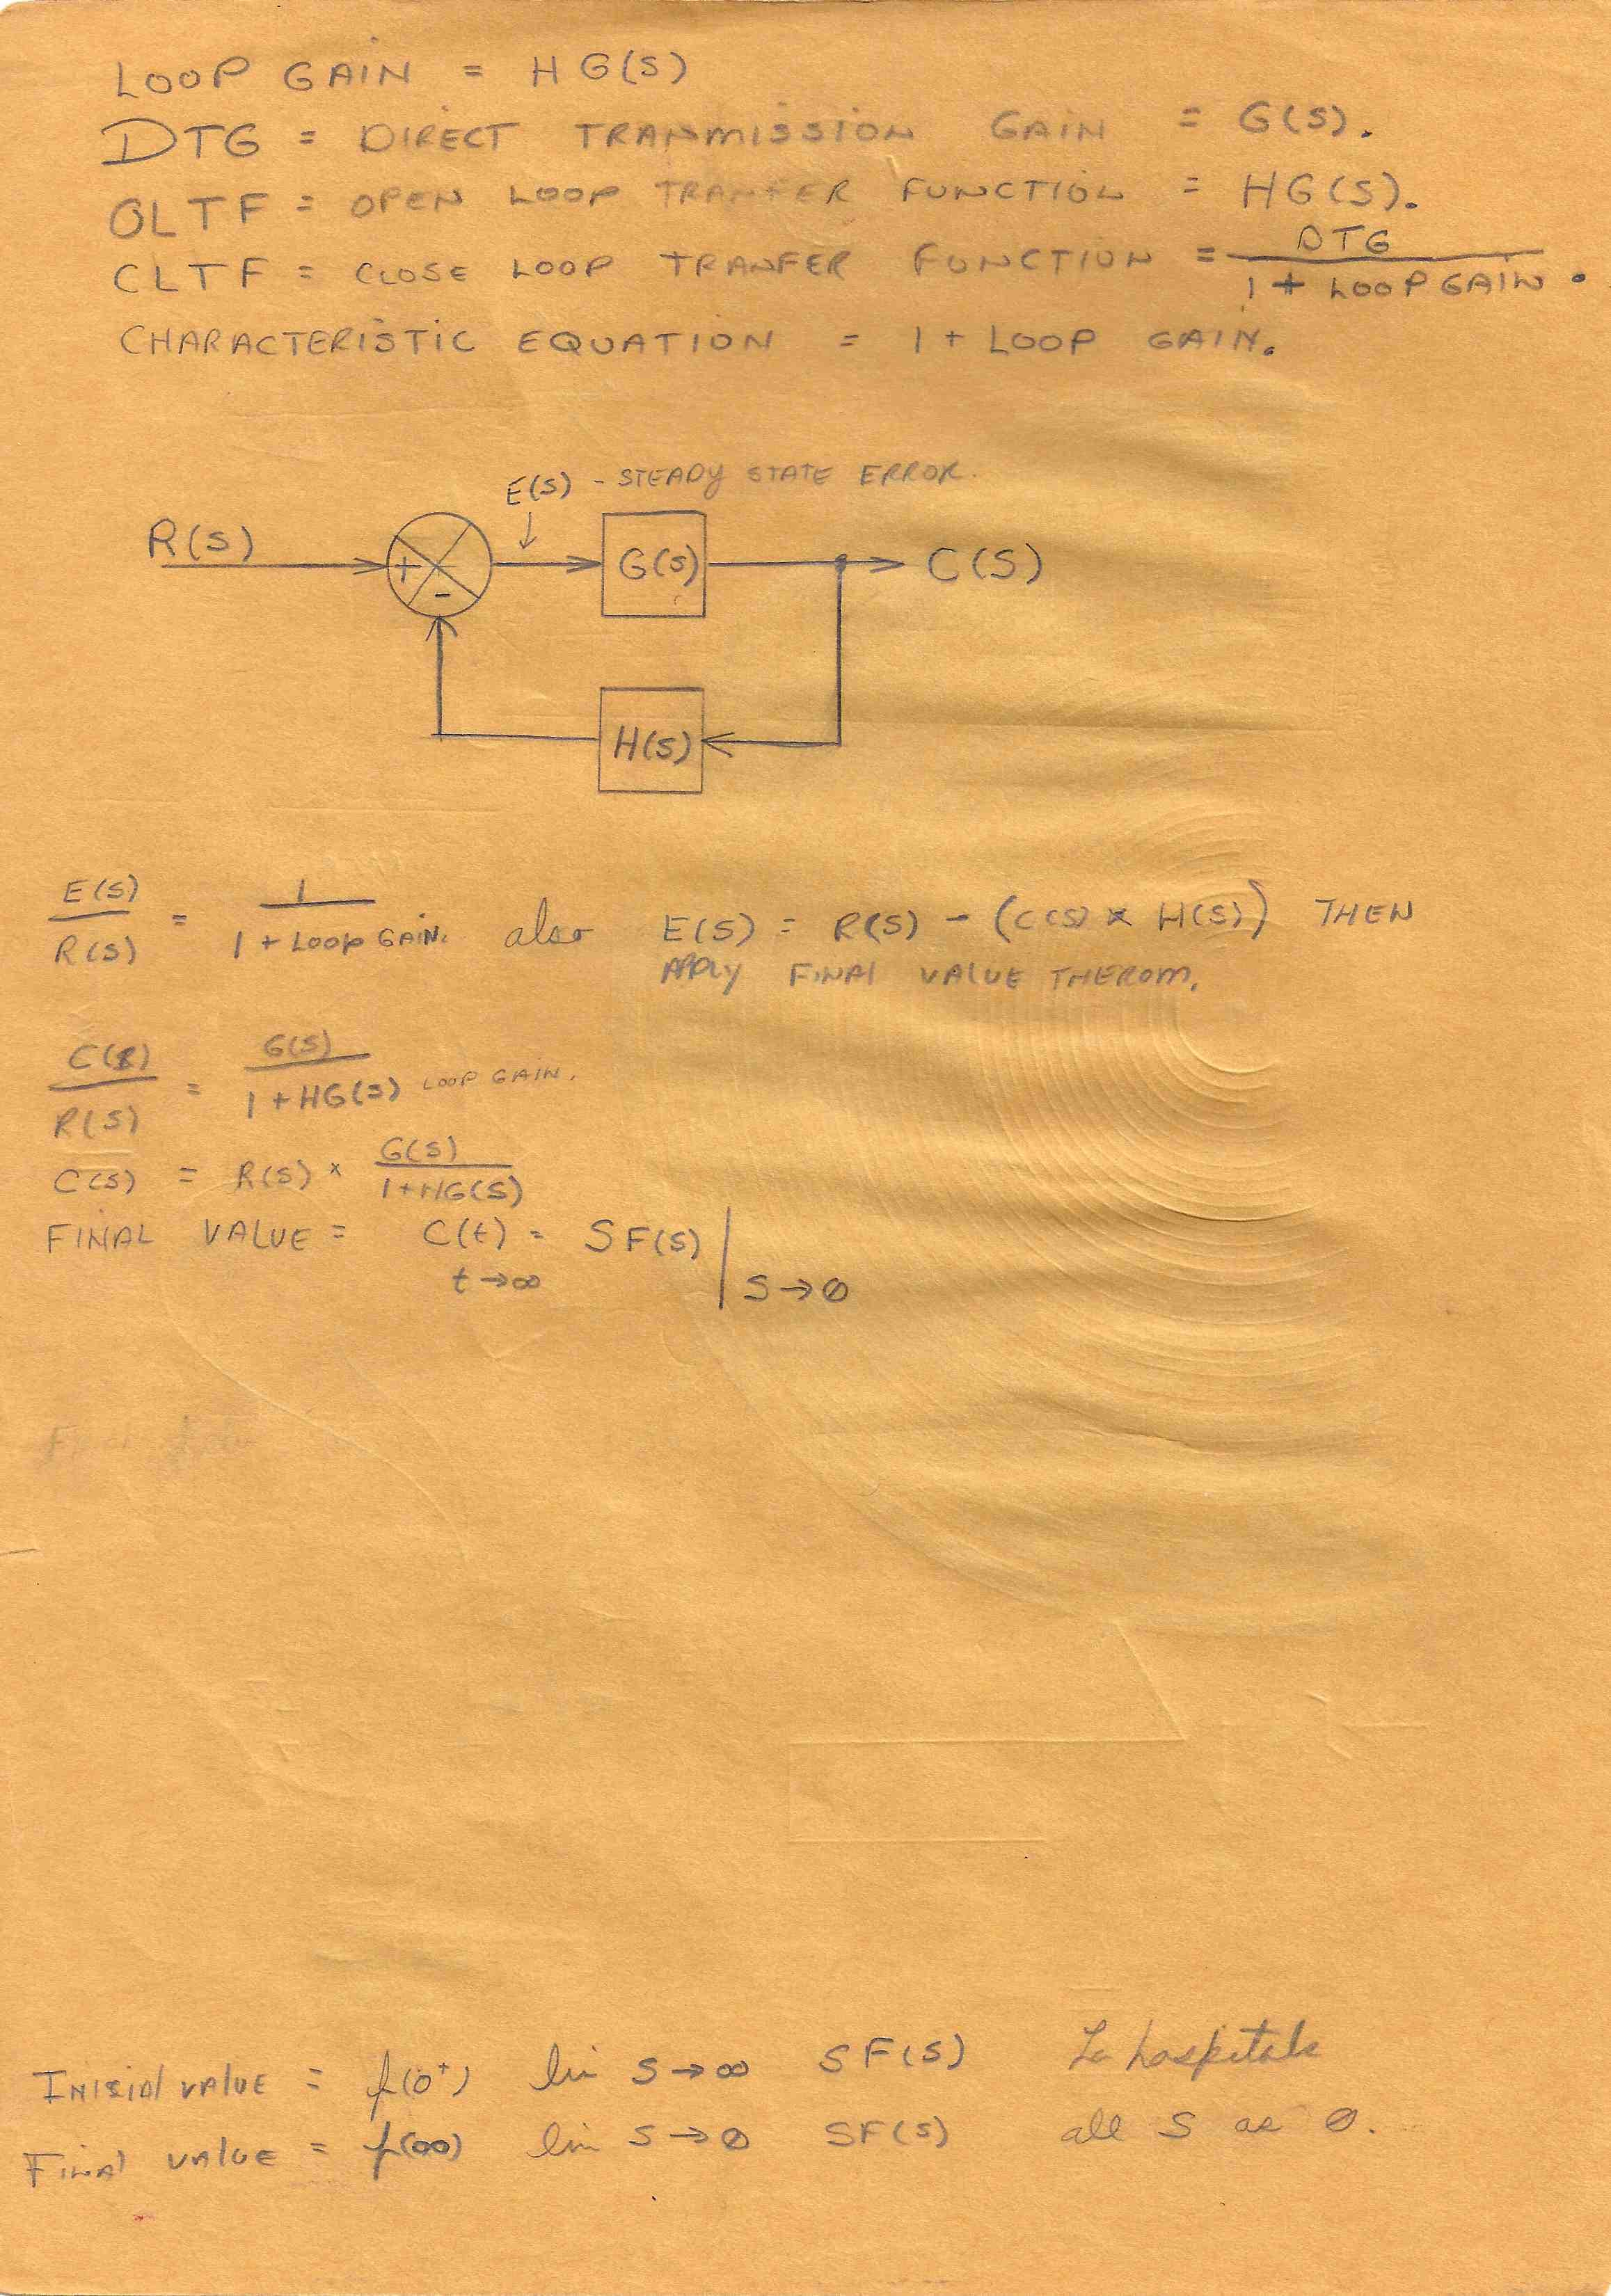 LOOP GAIN = HG(S)
DTG = DIRECT TRANMISSION GAIN = G(S).
OLTF = OPEN LOOP TRANFER FUNCTION = HG(S).
CLTF = CLOSE LOOP TRANFER FUNCTION = DTG / 1 + LOOP GAIN.
CHARACTERISTIC EQUATION = 1 + LOOP GAIN.
E(S) - STEADY STATE ERROR.
R(S) + - G(S) C(S)
H(S)
E(S) / R(S) = 1 / 1 + LOOP GAIN. also E(S) = R(S) - (C(S) × H(S)) THEN
APPLY FINAL VALUE THEROM.
C(S) / R(S) = G(S) / 1 + HG(S) LOOP GAIN.
C(S) = R(S) × G(S) / 1+HG(S)
FINAL VALUE = C(t) = SF(S) |
t→∞ S→0
INITIAL VALUE = f(0⁺) lim S→∞ SF(S) La hospitals
FINAL VALUE = f(∞) lim S→0 SF(S) all S as 0.